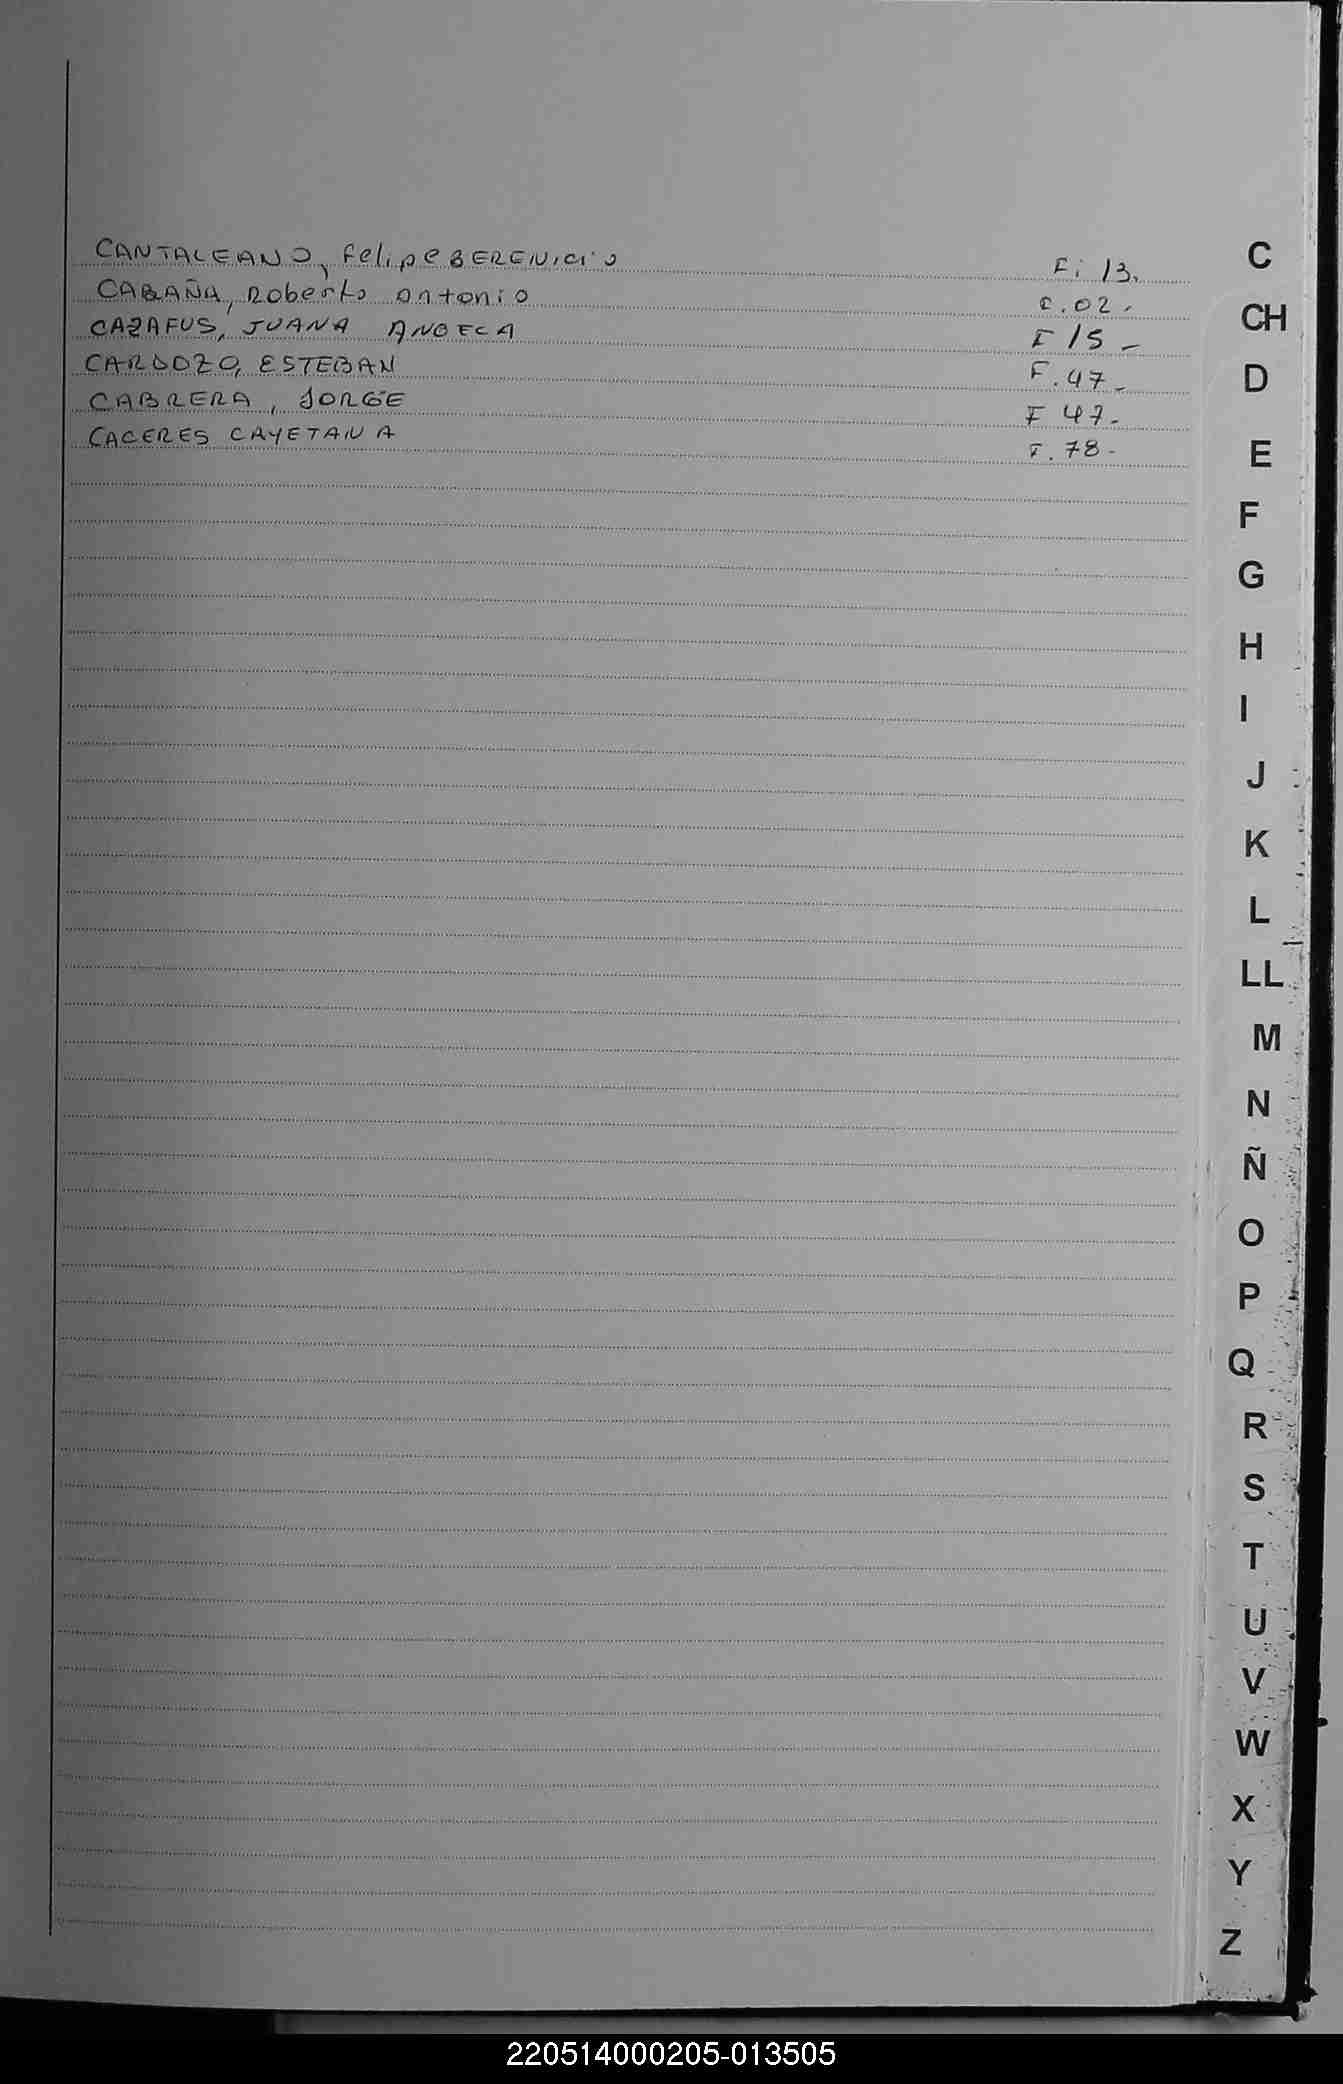 CANTALEANO, Felipe BERENICIO Fi 13.
CABAÑA, Roberto antonio C.02.
CAZAFUS, JUANA ANGELA F 15-
CARDOZO, ESTEBAN F.47-
CABRERA, JORGE F 47-
CACERES CAYETANA F.78-
C
CH
D
E
F
G
H
I
J
K
L
LL
M
N
Ñ
O
P
Q
R
S
T
U
V
W
X
Y
Z
220514000205-013505